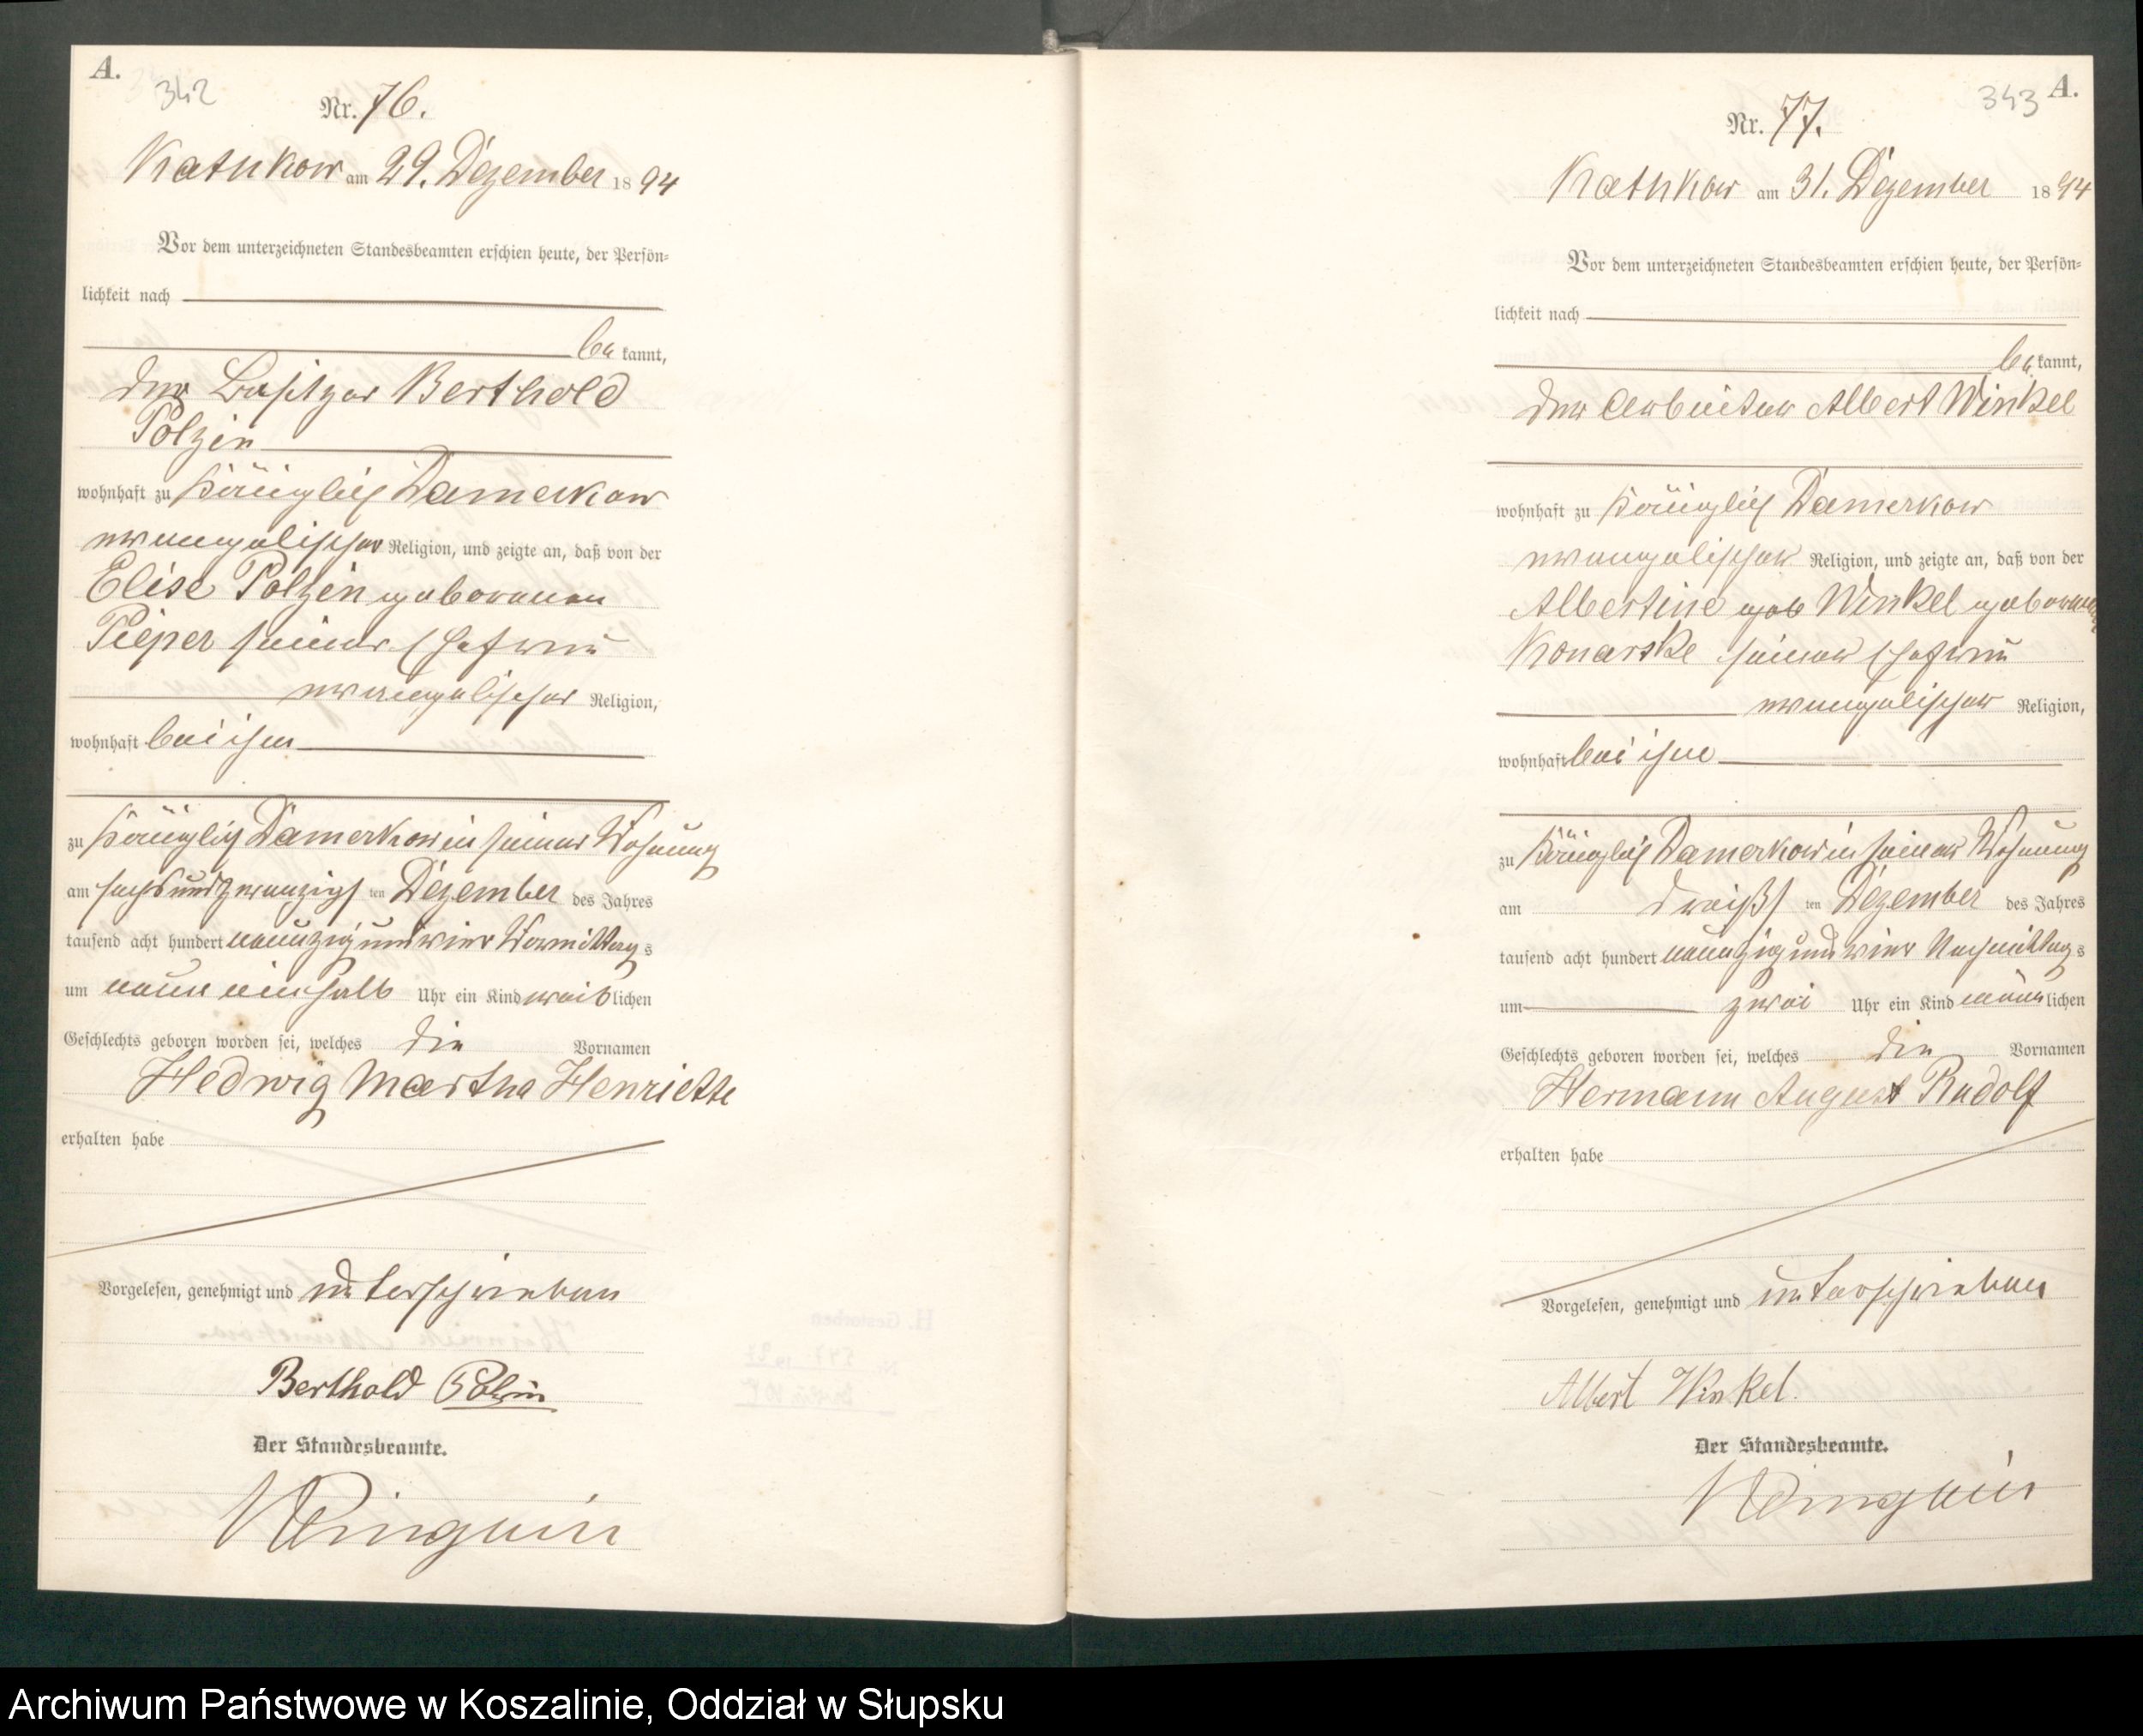 A.
342
Nr. 76.
Kathkow am 29. Dezember 1894
Vor dem unterzeichneten Standesbeamten erschien heute, der Persön-
lichkeit nach
bekannt,
der Besitzer Berthold
Polzin
wohnhaft zu Königlich Damerkow
evangelischer Religion, und zeigte an, daß von der
Elise Polzin geborenen
Pieper seiner Ehefrau
evangelischer Religion,
wohnhaft bei ihm
zu Königlich Damerkow in seiner Wohnung
am sechsundzwanzigsten Dezember des Jahres
tausend acht hundert neunzig und vier Vormittags
um neun einhalb Uhr ein Kind weiblichen
Geschlechts geboren worden sei, welches die Vornamen
Hedwig Martha Henriette
erhalten habe
Vorgelesen, genehmigt und unterschrieben
Berthold Polzin
Der Standesbeamte.
A.
343
Nr. 77.
Kathkow am 31. Dezember 1894
Vor dem unterzeichneten Standesbeamten erschien heute, der Persön-
lichkeit nach
bekannt,
der Arbeiter Albert Winkel
wohnhaft zu Königlich Damerkow
evangelischer Religion, und zeigte an, daß von der
Albertine geb Winkel geborenen
Konarske seiner Ehefrau
evangelischer Religion,
wohnhaft bei ihm
zu Königlich Damerkow in seiner Wohnung
am dreißigsten Dezember des Jahres
tausend acht hundert neunzig und vier Nachmittags
um zwei Uhr ein Kind männlichen
Geschlechts geboren worden sei, welches die Vornamen
Hermann August Rudolf
erhalten habe
Vorgelesen, genehmigt und unterschrieben
Albert Winkel.
Der Standesbeamte.
Archiwum Państwowe w Koszalinie, Oddział w Słupsku